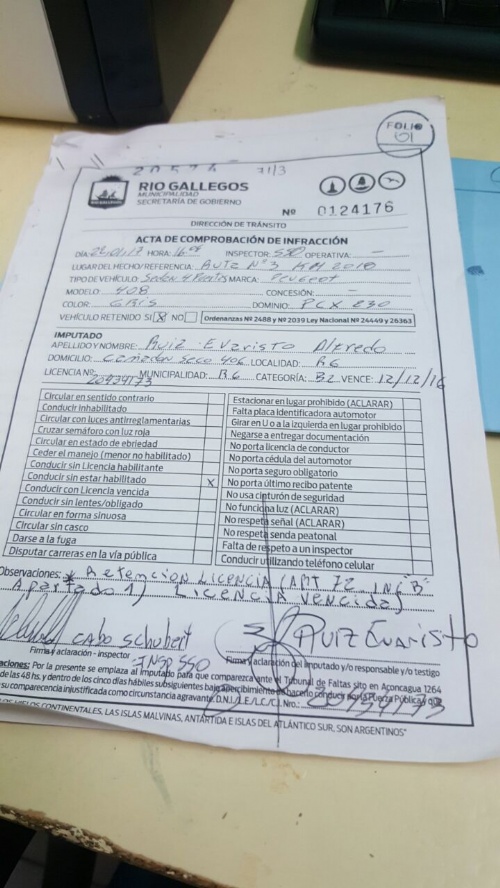 FOLIO
01
20574 71/3
RIO GALLEGOS
MUNICIPALIDAD
SECRETARÍA DE GOBIERNO
Nº 0124176
DIRECCIÓN DE TRÁNSITO
ACTA DE COMPROBACIÓN DE INFRACCIÓN
DÍA: HORA: 16 INSPECTOR: OPERATIVA: —
LUGAR DEL HECHO/REFERENCIA: RUTA Nº 3 KM
TIPO DE VEHÍCULO: Sedan 4 Puertas MARCA: Peugeot
MODELO 408 CONCESIÓN: —
COLOR GRIS DOMINIO: PCX 230
VEHÍCULO RETENIDO SI X NO Ordenanzas Nº 2488 y Nº 2039 Ley Nacional Nº 24449 y 26363
IMPUTADO
APELLIDO Y NOMBRE: Ruiz Evaristo Alfredo
DOMICILIO: Cañadon Seco 406 LOCALIDAD: RG
LICENCIA Nº: MUNICIPALIDAD: RG CATEGORÍA: B2 VENCE: 12/12/16
20434173
Circular en sentido contrario
Conducir inhabilitado
Circular con luces antirreglamentarias
Cruzar semáforo con luz roja
Circular en estado de ebriedad
Ceder el manejo (menor no habilitado)
Conducir sin Licencia habilitante
Conducir sin estar habilitado
Conducir con Licencia vencida X
Conducir sin lentes/obligado
Circular en forma sinuosa
Circular sin casco
Darse a la fuga
Disputar carreras en la vía pública
Estacionar en lugar prohibido (ACLARAR)
Falta placa identificadora automotor
Girar en U o a la izquierda en lugar prohibido
Negarse a entregar documentación
No porta licencia de conductor
No porta cédula del automotor
No porta seguro obligatorio
No porta último recibo patente
No usa cinturón de seguridad
No funciona luz (ACLARAR)
No respeta señal (ACLARAR)
No respeta senda peatonal
Falta de respeto a un inspector
Conducir utilizando teléfono celular
Observaciones: * Retencion LICENCIA (ART 72 INC "B"
Apartado 1) LICENCIA VENCIDA)
CABO Schubert RUIZ Evaristo
Firma y aclaración - inspector INSP SSO Firma y aclaración del imputado y/o responsable y/o testigo
aciones: Por la presente se emplaza al imputado para que comparezca ante el Tribunal de Faltas sito en Aconcagua 1264
de las 48 hs. y dentro de los cinco días hábiles subsiguientes bajo apercibimiento de hacerlo conducir por la Fuerza Pública y que
su comparencia injustificada como circunstancia agravante. D.N.I./L.E./L.C./C.I. Nro.:
HIELOS CONTINENTALES, LAS ISLAS MALVINAS, ANTÁRTIDA E ISLAS DEL ATLÁNTICO SUR, SON ARGENTINOS"